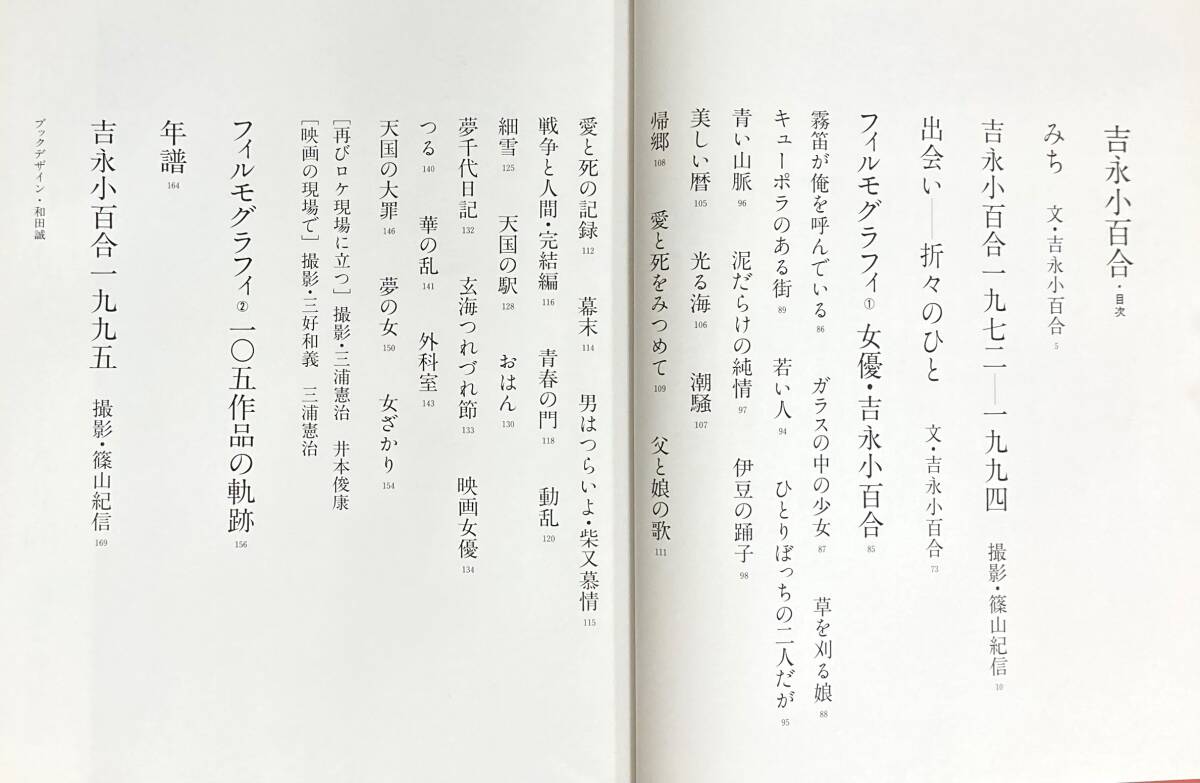 吉永小百合・目次
みち　文・吉永小百合 5
吉永小百合一九七二―一九九四　撮影・篠山紀信 10
出会い――折々のひと　文・吉永小百合 73
フィルモグラフィ① 女優・吉永小百合 85
霧笛が俺を呼んでいる 86　ガラスの中の少女 87　草を刈る娘 88
キューポラのある街 89　若い人 94　ひとりぼっちの二人だが 95
青い山脈 96　泥だらけの純情 97　伊豆の踊子 98
美しい暦 105　光る海 106　潮騒 107
帰郷 108　愛と死をみつめて 109　父と娘の歌 111
愛と死の記録 112　幕末 114　男はつらいよ・柴又慕情 115
戦争と人間・完結編 116　青春の門 118　動乱 120
細雪 125　天国の駅 128　おはん 130
夢千代日記 132　玄海つれづれ節 133　映画女優 134
つる 140　華の乱 141　外科室 143
天国の大罪 146　夢の女 150　女ざかり 154
［再びロケ現場に立つ］撮影・三浦憲治　井本俊康
［映画の現場で］撮影・三好和義　三浦憲治
フィルモグラフィ② 一〇五作品の軌跡 156
年譜 164
吉永小百合一九九五　撮影・篠山紀信 169
ブックデザイン・和田誠